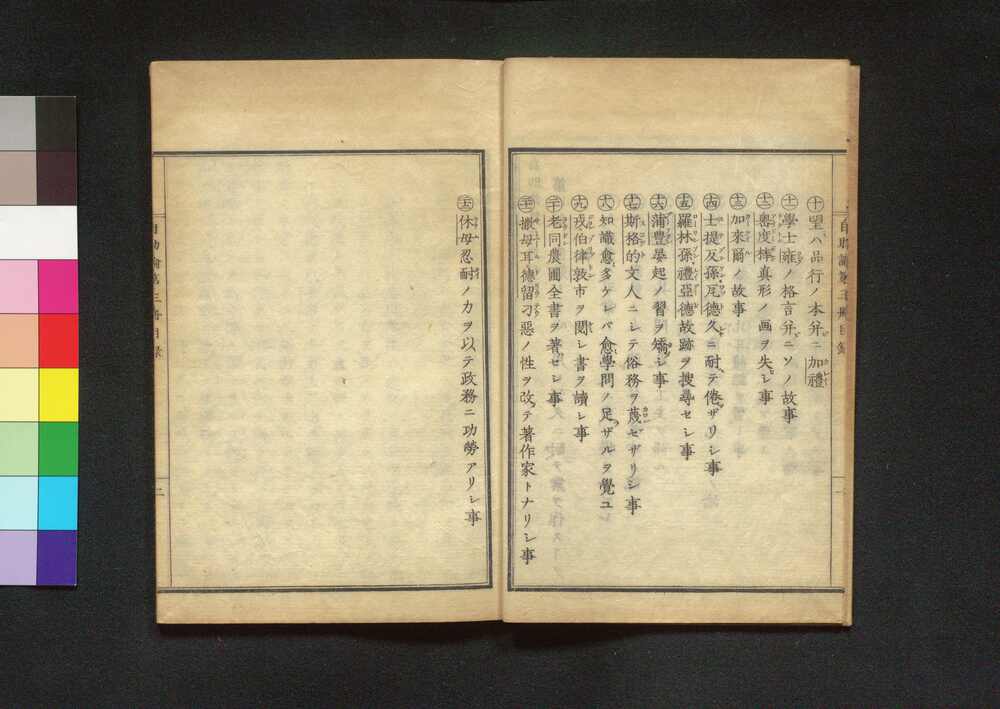 自助論第三冊目録
一
㊉望ハ品行ノ本弁ニ加禮
十一學士雍ノ格言弁ニソノ故事
十二奥度捧真形ノ画ヲ失シ事
十三加來爾ノ故事
十四士提反孫瓦德久ニ耐テ倦ザリシ事
十五羅林孫禮亞德故跡ヲ搜尋セシ事
十六蒲豐晏起ノ習ヲ矯シ事
十七斯格的文人ニシテ俗務ヲ蔑セザリシ事
十八知識愈多ケレバ愈學問ノ足ザルヲ覺ユ
十九戎伯律敦市ヲ閲シ書ヲ讀シ事
二十老同農圃全書ヲ著セシ事
二十一撒母耳德留刁惡ノ性ヲ改テ著作家トナリシ事
休母忍耐ノ力ヲ以テ政務ニ功勞アリシ事
自助論第三冊目録
二